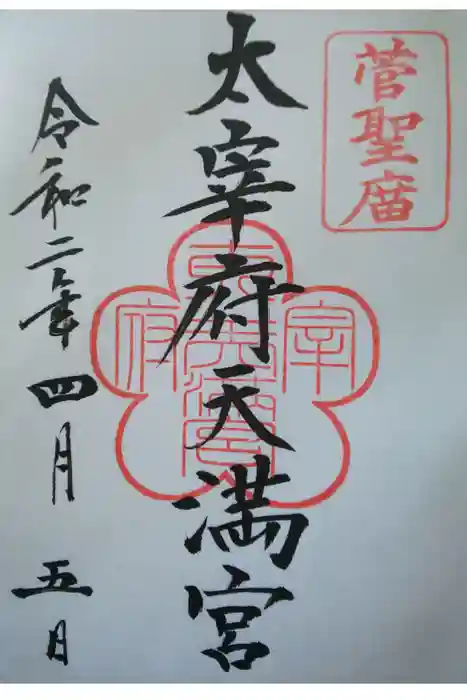 菅聖庿
太宰府天満宮
令和二年四月五日